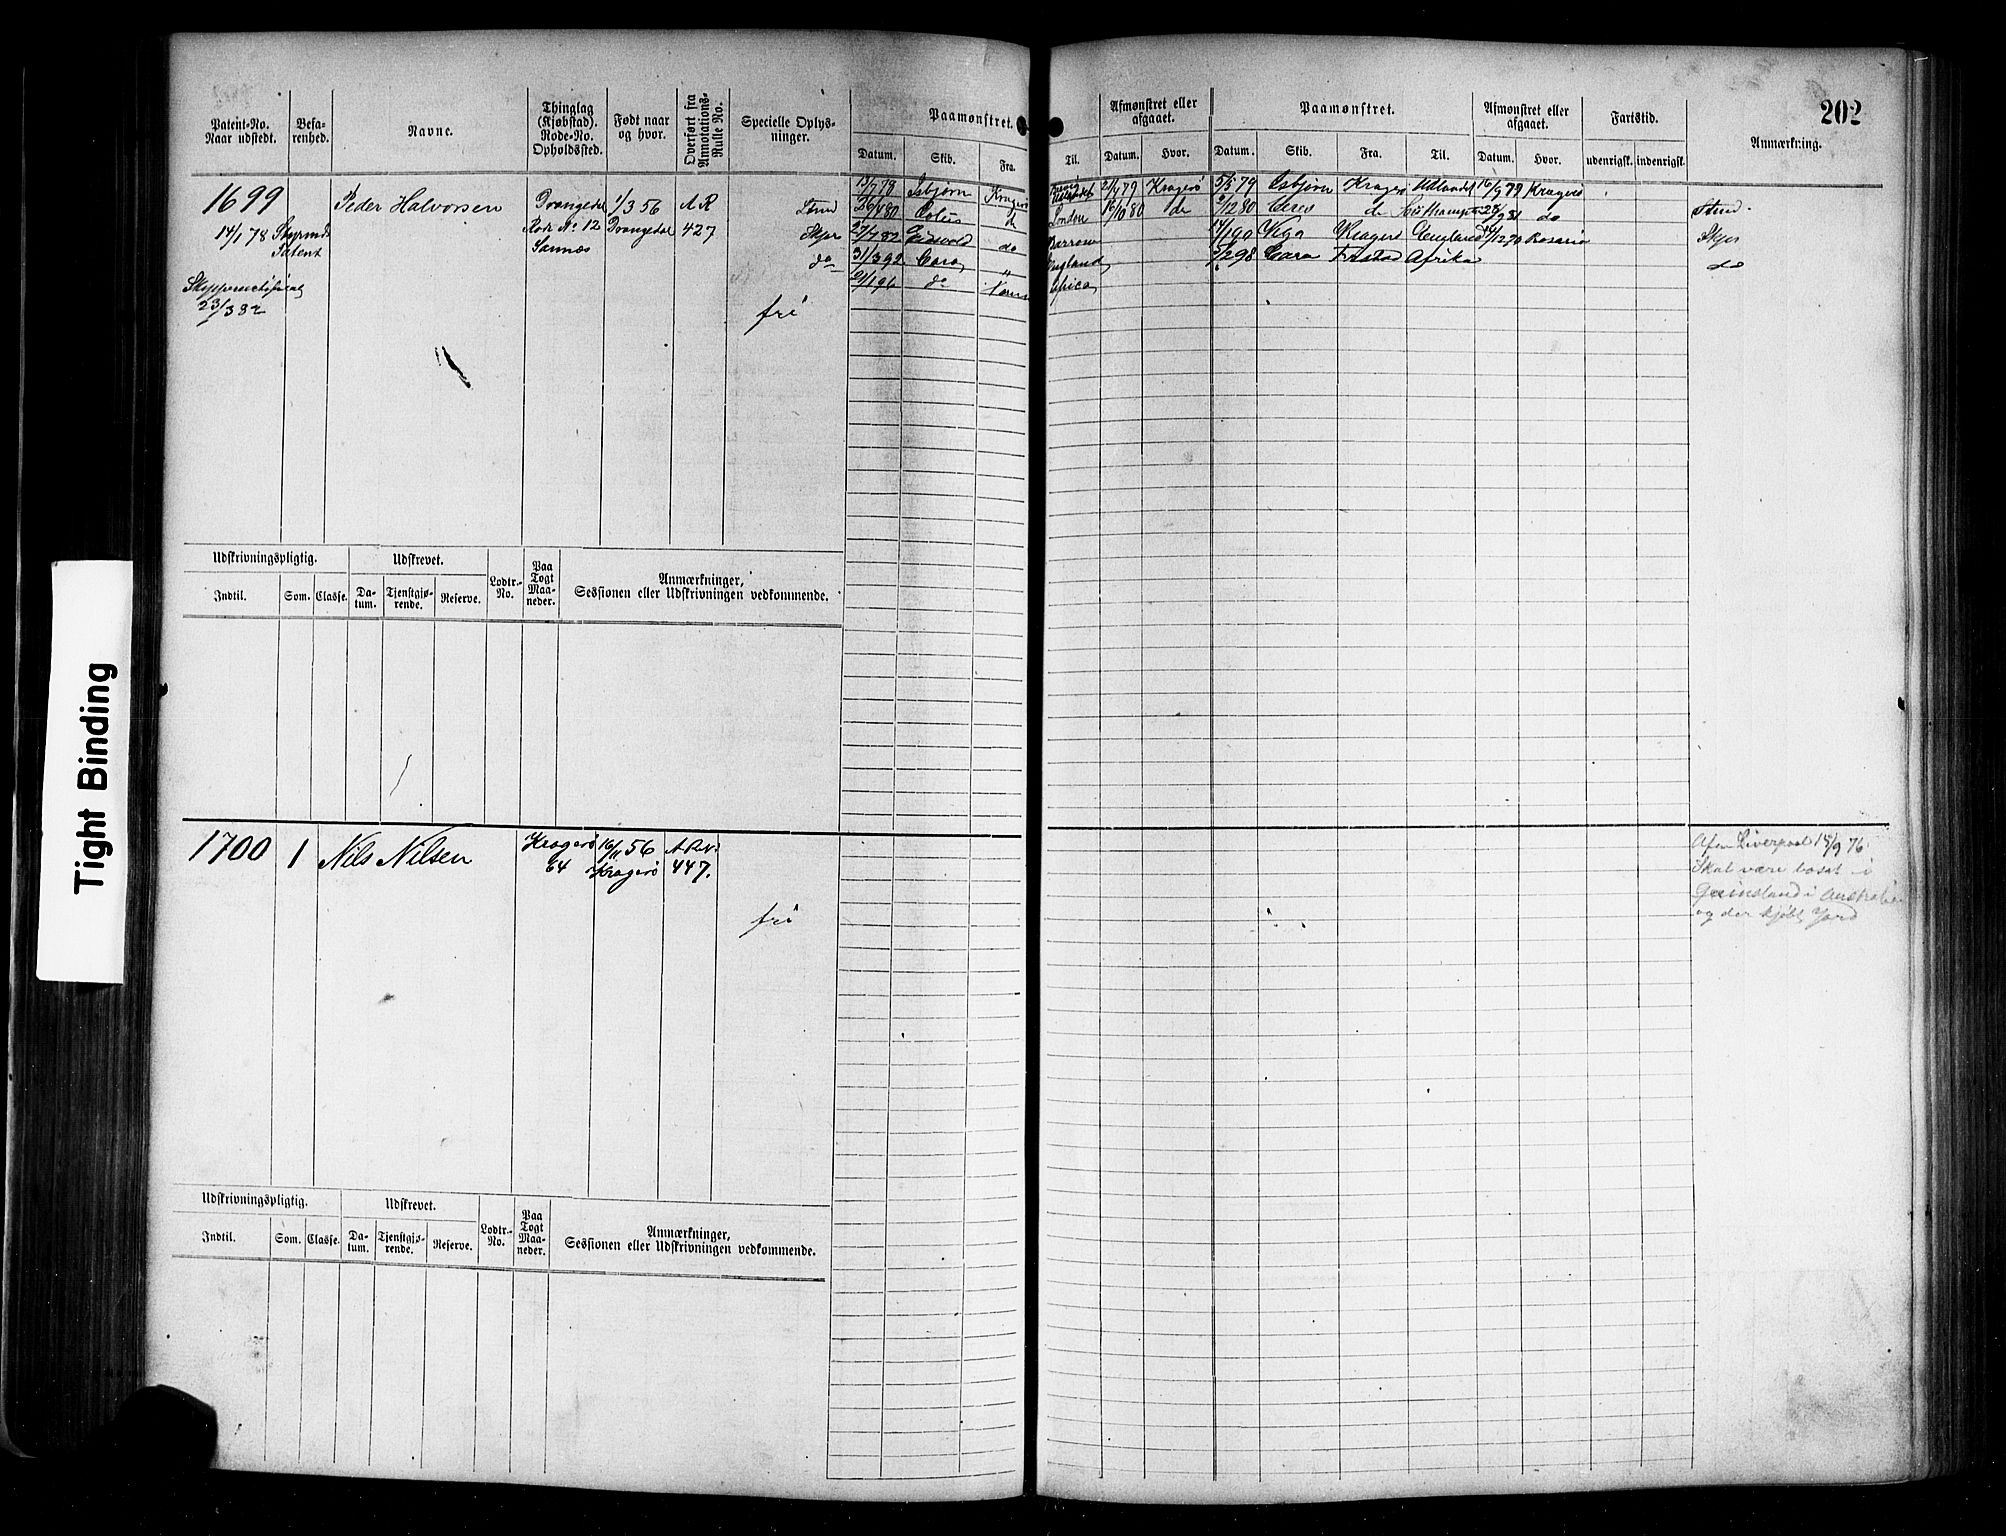 202
Patent-No.
Naar udstedt.
Befa-
renhed.
Navne.
Thinglag
(Kjøbstad).
Rode-No.
Opholdssted.
Født naar
og hvor.
Overført fra
Annotations-
Rulle No.
Specielle Oplys-
ninger.
Paamønstret.
Datum. Skib. Fra Til.
Afmønstret eller
afgaaet.
Datum. Hvor.
Paamønstret.
Datum. Skib. Fra. Til.
Afmønstret eller
afgaaet.
Datum. Hvor.
Fartstid.
udenrigsk. indenrigsk.
Anmærkning.
1699
14/1 78
Styrmds
Patent
23/3 82
Peder Halvorsen
Drangedal
Rode No 12
Sannes
1/3 56
Drangedal
A R
427
Stmd
Skpr
do
fri
13/7 78 Isbjørn Kragerø
Udlandet 21/4 79 Kragerø
5/5 79 Isbjørn Kragerø Udlandet 16/9 79 Kragerø
Stmd.
London 16/10 80 do
/12 80 Ceres do Southampton 81 do
Skpr
27/7 82 Eidsvold do Barrow
/1 90 Viga Kragerø England /12 90 Rosario
do
31/3 92 Cara " England
/2 98 Cara Frstad Afrika
21/1 96 do Africa
Udskrivningspligtig.
Indtil. Som. Classe.
Udskrevet.
Da-
tum.
Tjenstgjø-
rende.
Reserve.
Lodtr.-
No.
Paa
Togt
Maa-
neder.
Anmærkninger,
Sessionen eller Udskrivningen vedkommende.
1700 1 Nils Nilsen
Kragerø
64
16/11 56
Kragerø
A.R.N.
447.
fri
Afm Liverpool 15/9 76
Skal være bosat i
Queinsland i Australien
og der kjøbt Jord
Udskrivningspligtig.
Indtil. Som. Classe.
Udskrevet.
Da-
tum.
Tjenstgjø-
rende.
Reserve.
Lodtr.-
No.
Paa
Togt
Maa-
neder.
Anmærkninger,
Sessionen eller Udskrivningen vedkommende.
Tight Binding